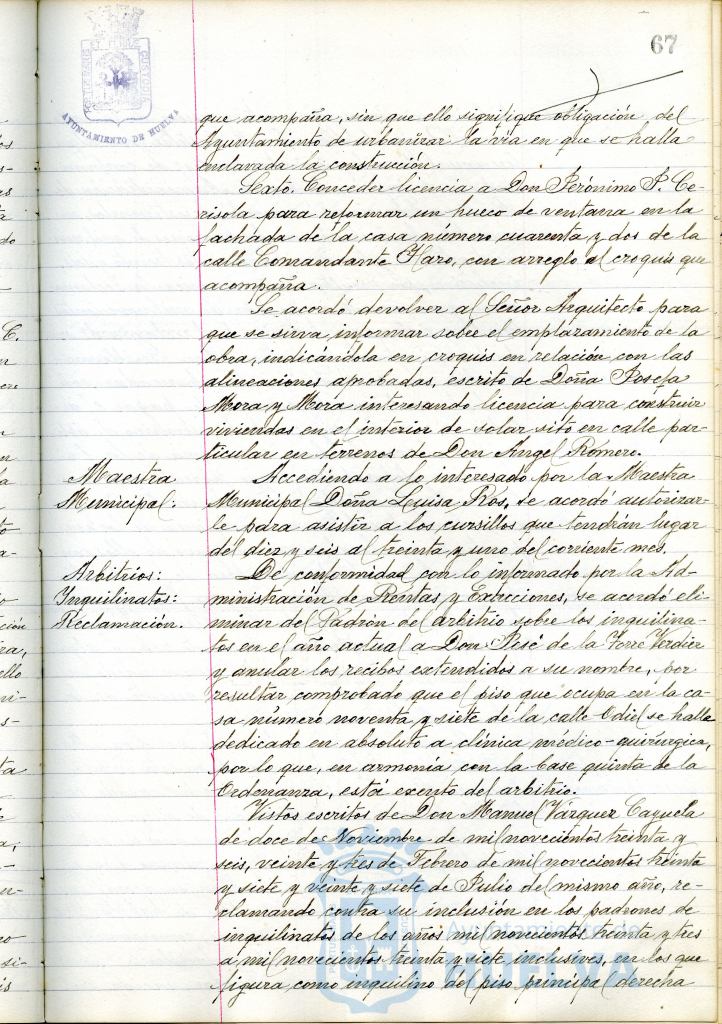 67
AYUNTAMIENTO DE HUELVA
que acompaña, sin que ello signifique obligación del
Ayuntamiento de urbanizar la vía en que se halla
enclavada la construcción.
Sexto. Conceder licencia a Don Jerónimo P. Ce-
risola para reformar un hueco de ventana en la
fachada de la casa número cuarenta y dos de la
calle Comandante Haro, con arreglo al croquis que
acompaña.
Se acordó devolver al Señor Arquitecto para
que se sirva informar sobre el emplazamiento de la
obra, indicándola en croquis en relación con las
alineaciones aprobadas, escrito de Doña Josefa
Mora y Mora interesando licencia para construir
viviendas en el interior de solar sito en calle par-
ticular en terrenos de Don Angel Romero.
Maestra
Municipal:
Accediendo a lo interesado por la Maestra
Municipal Doña Luisa Ros, se acordó autorizar-
le para asistir a los cursillos que tendrán lugar
del diez y seis al treinta y uno del corriente mes.
Arbitrios:
Inquilinatos:
Reclamación.
De conformidad con lo informado por la Ad-
ministración de Rentas y Exacciones, se acordó eli-
minar del Padrón de arbitrio sobre los inquilina-
tos en el año actual a Don José de la Torre Verdier
y anular los recibos extendidos a su nombre, por
resultar comprobado que el piso que ocupa en la ca-
sa número noventa y siete de la calle Odiel se halla
dedicado en absoluto a clínica médico-quirúrgica,
por lo que, en armonía con la base quinta de la
Ordenanza, está exento del arbitrio.
Vistos escritos de Don Manuel Vázquez Cayuela
de doce de Noviembre de mil novecientos treinta y
seis, veinte y tres de Febrero de mil novecientos treinta
y siete y veinte y siete de Julio del mismo año, re-
clamando contra su inclusión en los padrones de
inquilinatos de los años mil novecientos treinta y tres
a mil novecientos treinta y siete inclusives, en los que
figura como inquilino del piso principal derecha
Ayuntamiento de
HUELVA